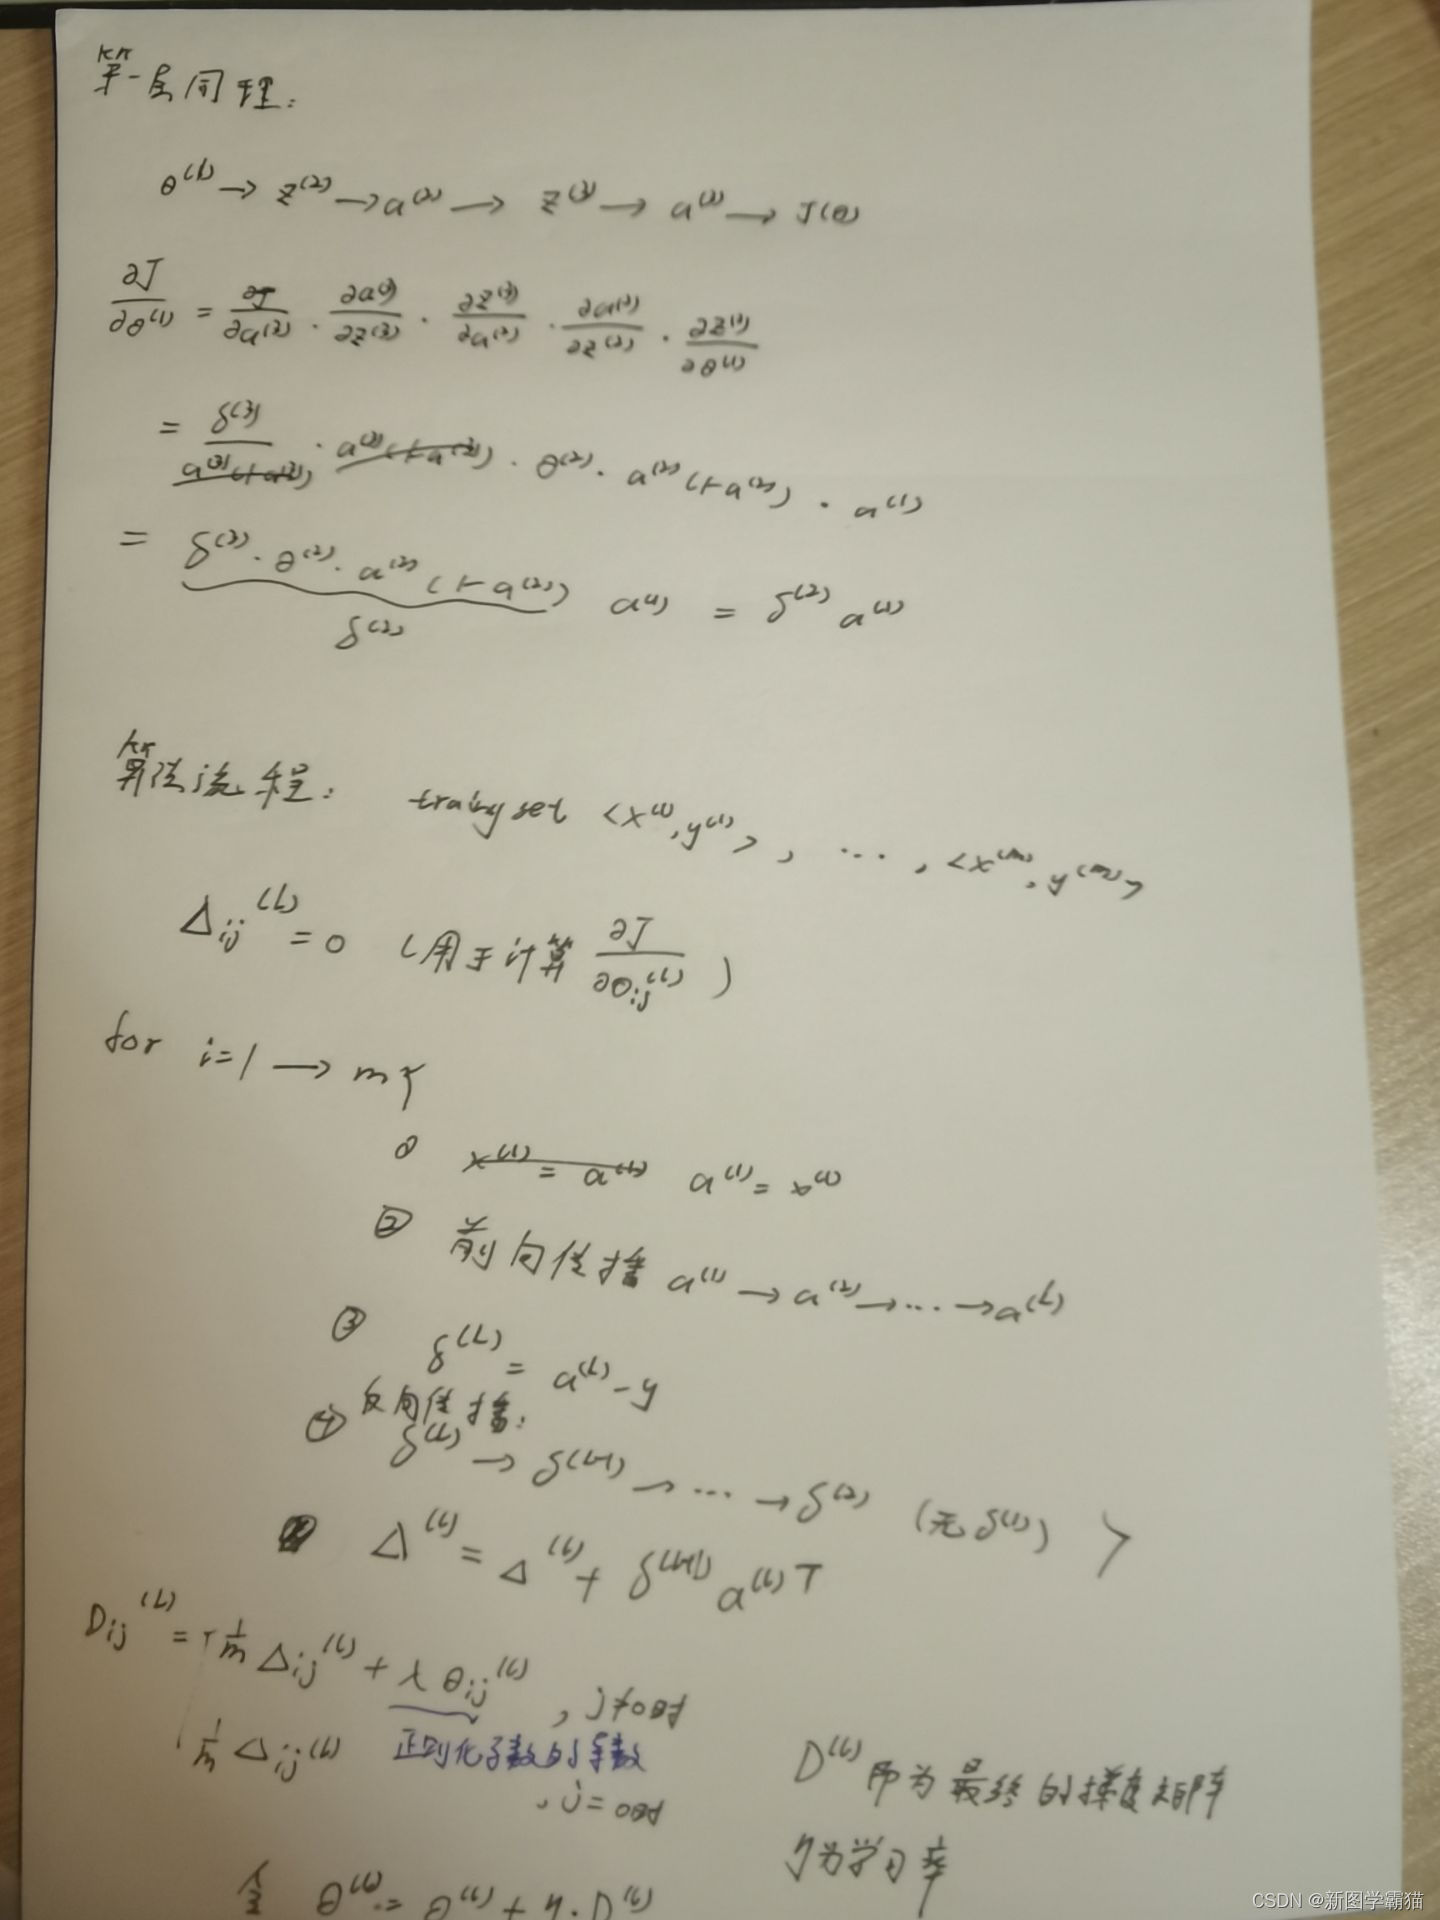 第一层同理:
θ^(1) → z^(2) → a^(2) → z^(3) → a^(3) → J(θ)
∂J/∂θ^(1) = ∂J/∂a^(3) · ∂a^(3)/∂z^(3) · ∂z^(3)/∂a^(2) · ∂a^(2)/∂z^(2) · ∂z^(2)/∂θ^(1)
= δ^(3)/a^(3)(1-a^(3)) · a^(3)(1-a^(3)) · θ^(2) · a^(2)(1-a^(2)) · a^(1)
= δ^(3) · θ^(2) · a^(2)(1-a^(2)) a^(1) = δ^(2) a^(1)
δ^(2)
算法流程: traing set <x^(1), y^(1)>, ···, <x^(m), y^(m)>
Δij^(L) = 0 (用于计算 ∂J/∂θij^(L))
for i=1 → m {
① x^(1) = a^(1) a^(1) = x^(i)
② 前向传播 a^(1) → a^(2) → ··· → a^(L)
③ δ^(L) = a^(L) - y
④ 反向传播:
δ^(L) → δ^(L-1) → ··· → δ^(2) (无δ^(1)) }
Δ^(L) = Δ^(L) + δ^(L+1) a^(L)T
Dij^(L) = { 1/m Δij^(L) + λ θij^(L) , j≠0时
1/m Δij^(L) 正则化子数的导数
, j=0时
D^(L) 即为最终的梯度矩阵
η为学习率
令 θ^(L) := θ^(L) + η · D^(L)
CSDN @新图学霸猫